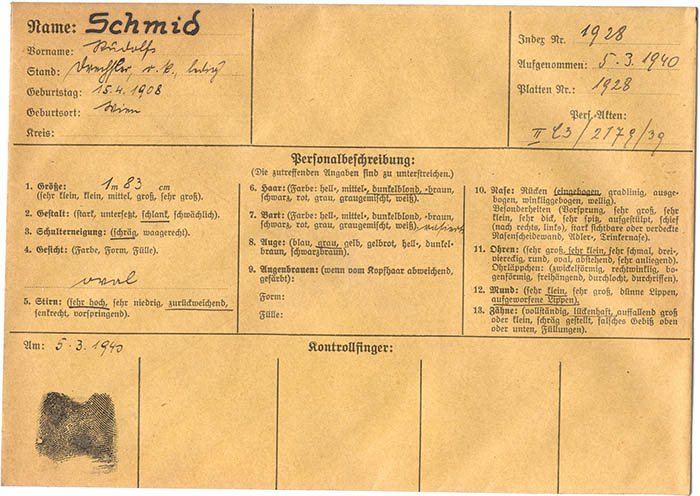 Name: Schmid
Vorname: Rudolf
Stand: Drechsler, r. k., ledig
Geburtstag: 15.4.1908
Geburtsort: Wien
Kreis:
Index Nr. 1928
Aufgenommen: 5.3.1940
Platten Nr.: 1928
Pers.-Akten:
II C3/2179/39
Personalbeschreibung:
(Die zutreffenden Angaben sind zu unterstreichen.)
1. Größe: 1m 83 cm
(sehr klein, klein, mittel, groß, sehr groß).
2. Gestalt: (stark, untersetzt, schlank, schwächlich).
3. Schulterneigung: (schräg, waagerecht).
4. Gesicht: (Farbe, Form, Fülle).
oval
5. Stirn: (sehr hoch, sehr niedrig, zurückweichend,
senkrecht, vorspringend).
6. Haar: (Farbe: hell-, mittel-, dunkelblond, -braun,
schwarz, rot, grau, graugemischt, weiß).
7. Bart: (Farbe: hell-, mittel-, dunkelblond, -braun,
schwarz, rot, grau, graugemischt, weiß) rasiert
8. Auge: (blau, grau, gelb, gelbrot, hell-, dunkel-
braun, schwarzbraun).
9. Augenbrauen: (wenn vom Kopfhaar abweichend,
gefärbt):
Form:
Fülle:
10. Nase: Rücken (eingebogen, gradlinig, ausge-
bogen, winkliggebogen, wellig).
Besonderheiten (Vorsprung, sehr groß, sehr
klein, sehr dick, sehr spitz, aufgestülpt, schief
(nach rechts, links), stark sichtbare oder verdeckte
Nasenscheidewand, Adler-, Trinkernase).
11. Ohren: (sehr groß, sehr klein, sehr schmal, drei-
viereckig, rund, oval, abstehend, sehr anliegend).
Ohrläppchen: (zwickelförmig, rechtwinklig, bo-
genförmig, freihängend, durchlocht, durchrissen).
12. Mund: (sehr klein, sehr groß, dünne Lippen,
aufgeworfene Lippen).
13. Zähne: (vollständig, lückenhaft, auffallend groß
oder klein, schräg gestellt, falsches Gebiß oben
oder unten, Füllungen).
Am: 5.3.1940
Kontrollfinger: